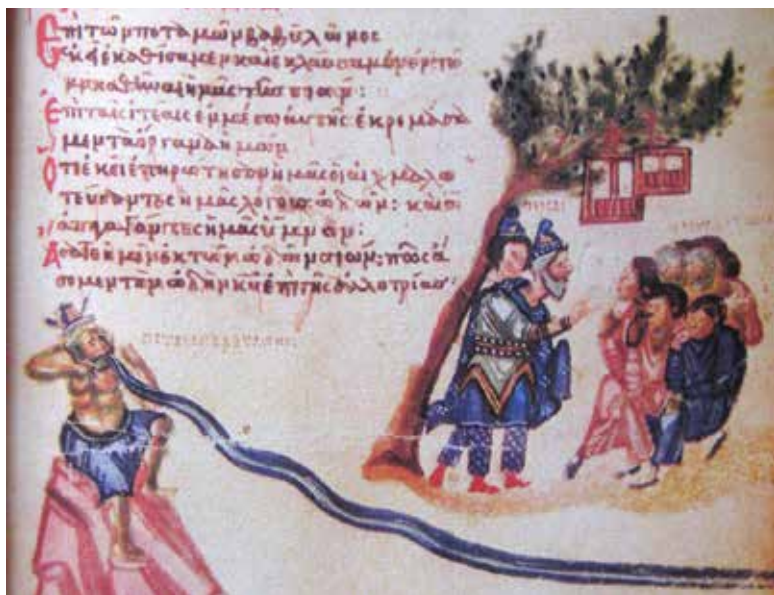 Ἐπὶ τῶν ποταμῶν βαβυλῶνος
ἐκεῖ ἐκαθίσαμεν καὶ ἐκλαύσαμεν ἐν τῶ
μνησθῆναι ἡμᾶς τῆς σιών:
Ἐπὶ ταῖς ἰτέαις ἐν μέσω αὐτῆς ἐκρεμάσα
μεν τὰ ὄργανα ἡμῶν
Ὅτι ἐκεῖ ἐπηρώτησαν ἡμᾶς οἱ αἰχμαλω
τεύσαντες ἡμᾶς λόγους ὠδῶν: καὶ οἱ
ἀπαγαγόντες ἡμᾶς ὕμνον:
Ἄσατε ἡμῖν ἐκ τῶν ὠδῶν σιών; πῶς ἄ
σωμεν τὴν ὠδὴν κυ ἐπὶ γῆς ἀλλοτρίας·